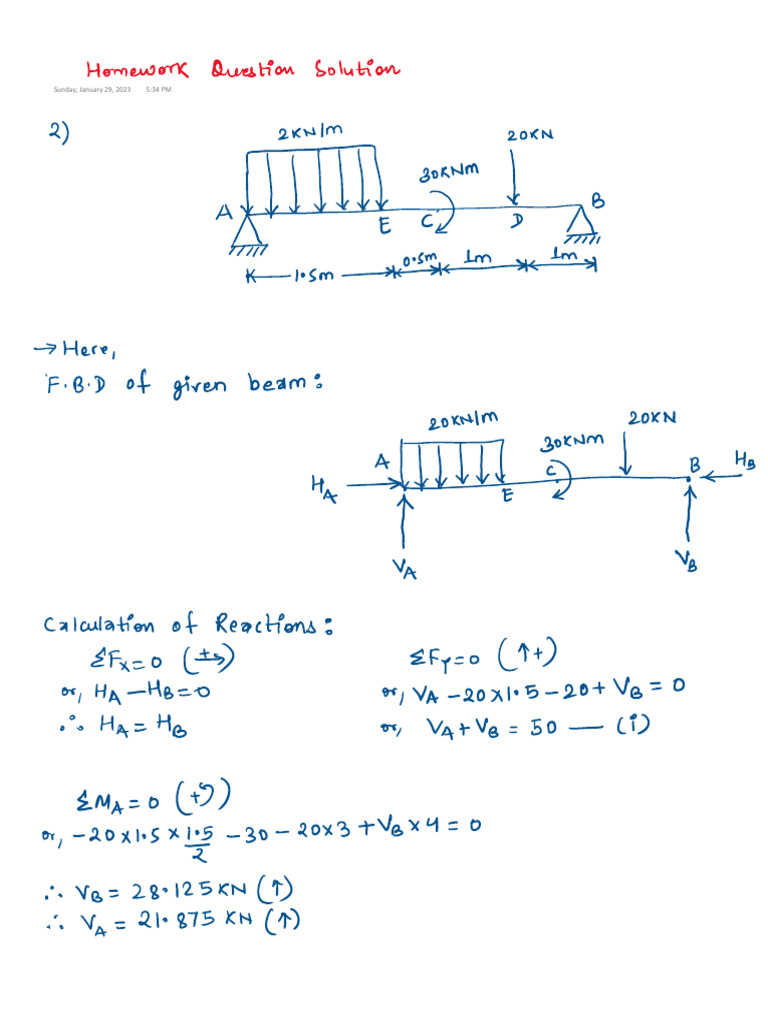 Homework Question Solution
Sunday, January 29, 2023 5:34 PM
2)
2KN/m 20KN
30KNm
A E C D B
1.5m 0.5m 1m 1m
→ Here,
F.B.D of given beam:
20KN/m 30KNm 20KN
A C B H_B
H_A E
V_A V_B
Calculation of Reactions:
ΣF_x=0 (+→) ΣF_Y=0 (↑+)
or, H_A - H_B = 0 or, V_A - 20×1.5 - 20 + V_B = 0
∴ H_A = H_B or, V_A + V_B = 50 — (i)
ΣM_A = 0 (+↺)
or, -20×1.5×1.5/2 - 30 - 20×3 + V_B×4 = 0
∴ V_B = 28.125 KN (↑)
∴ V_A = 21.875 KN (↑)